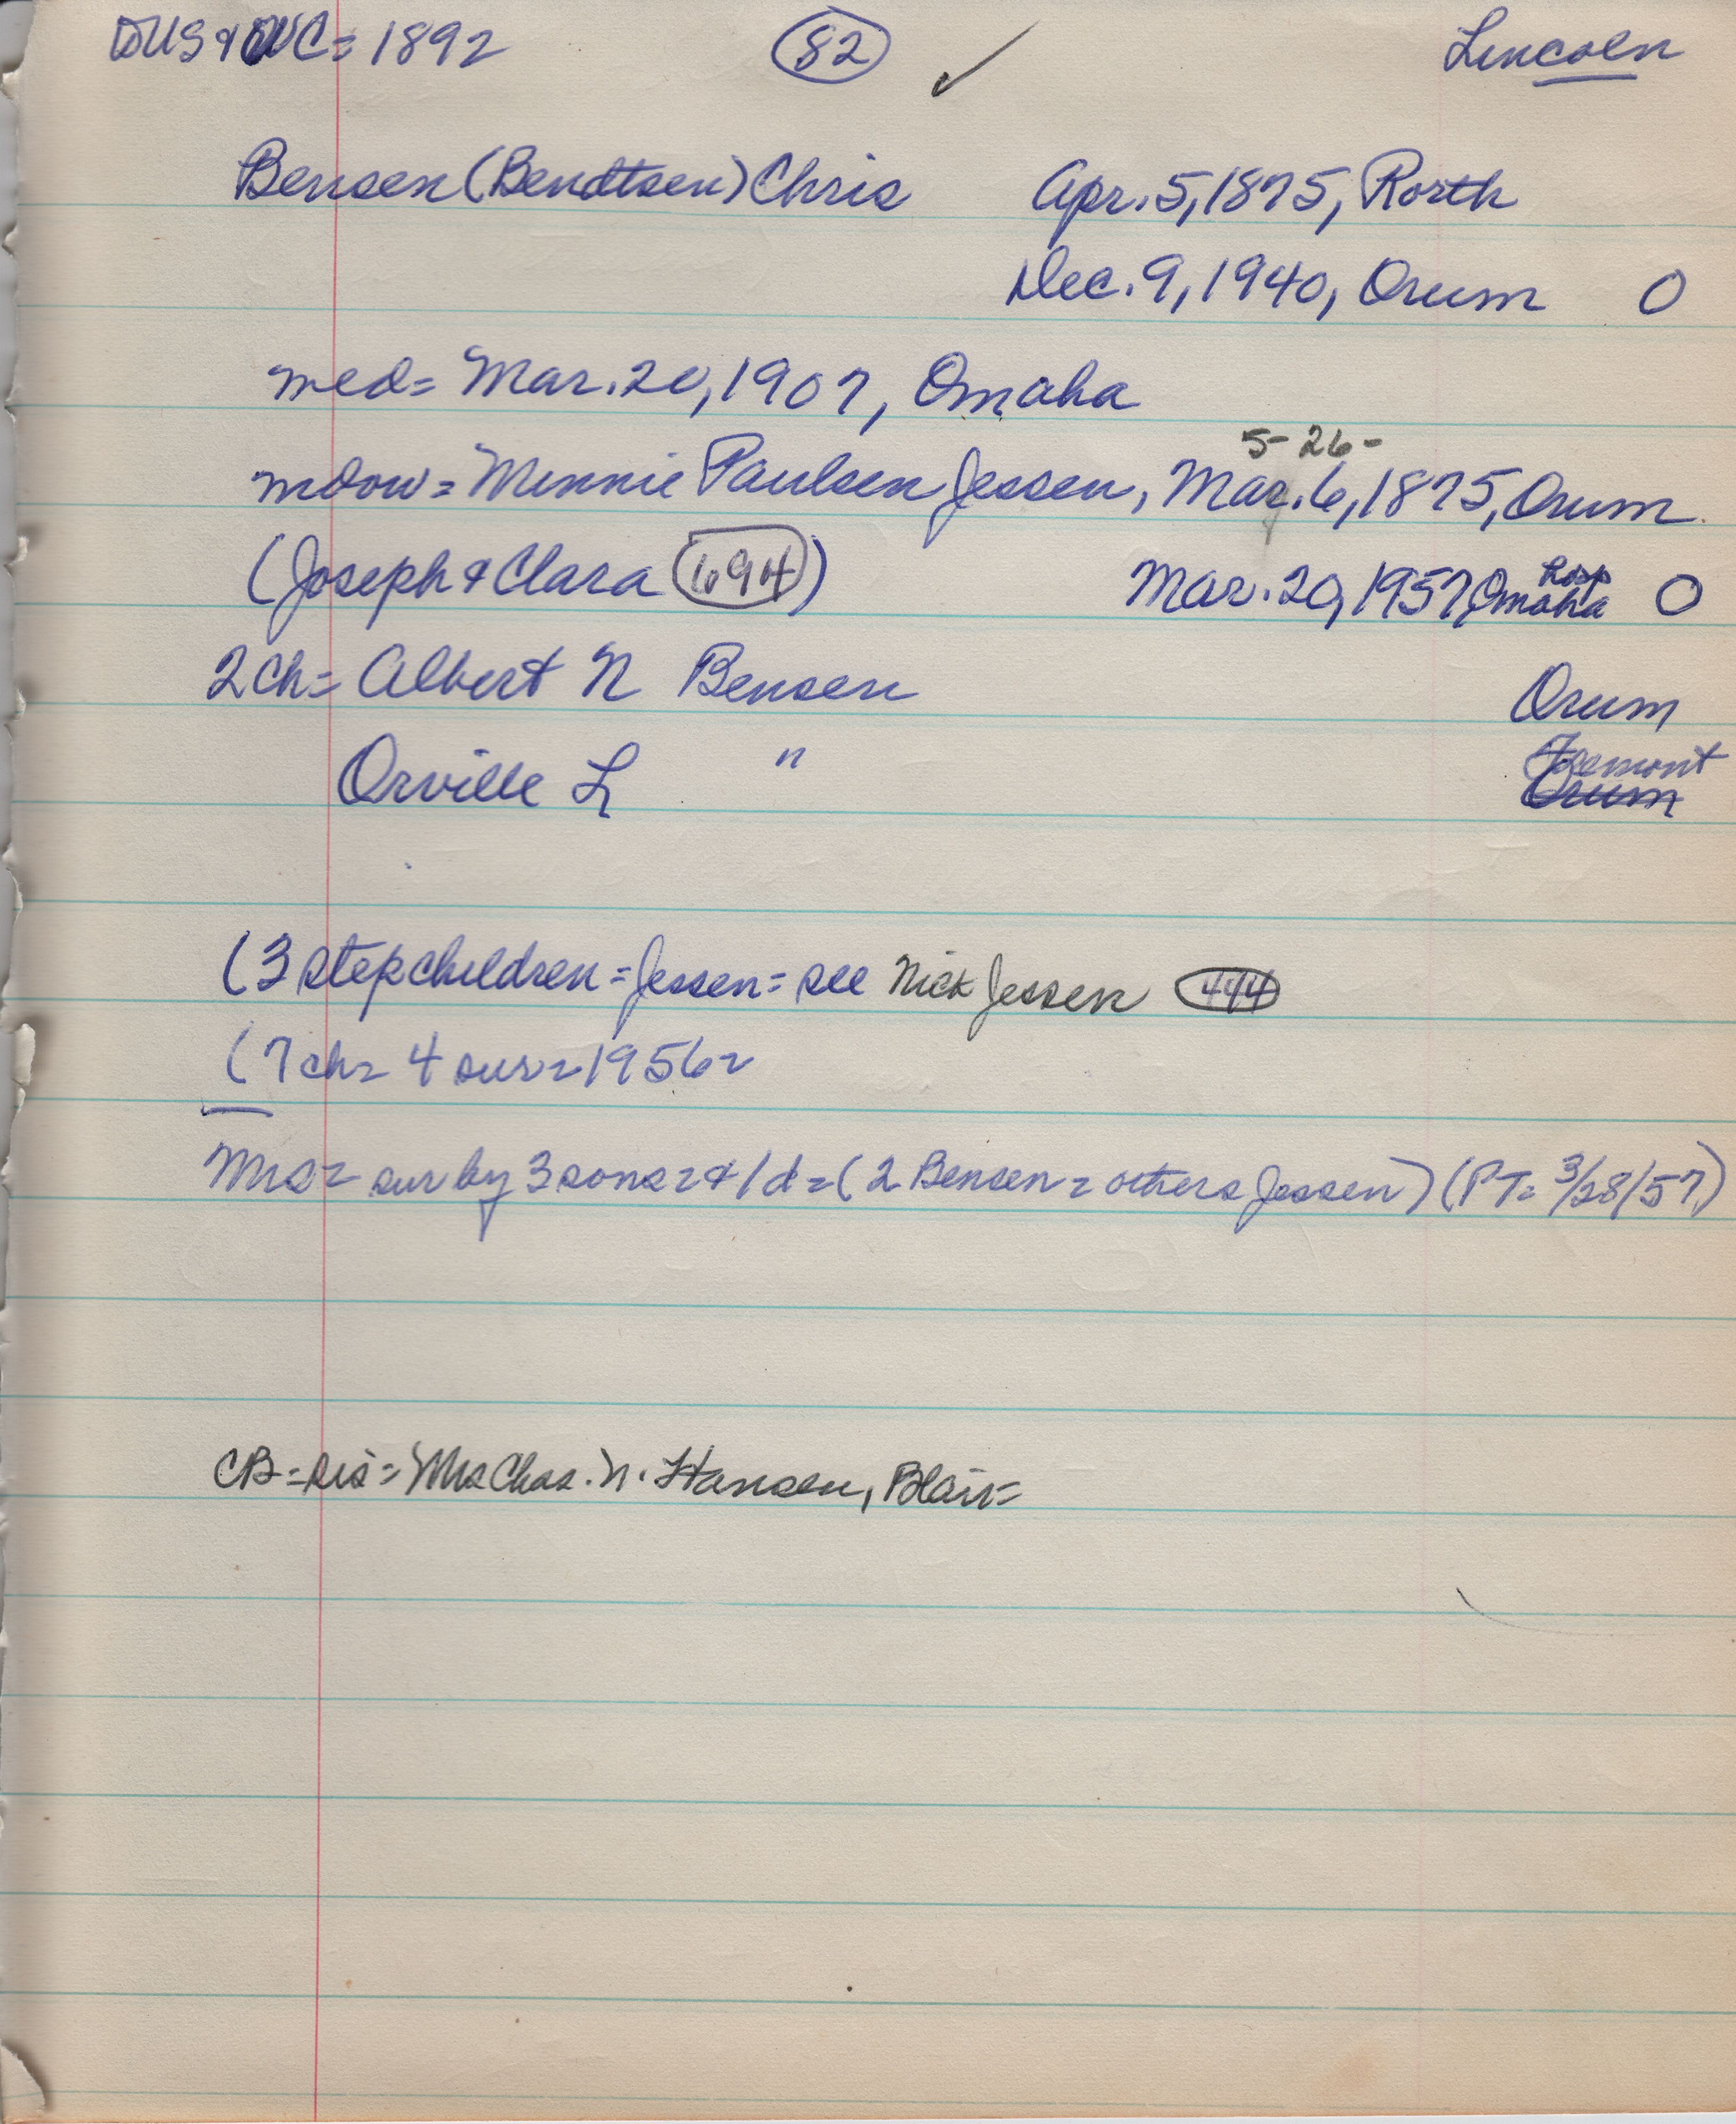 DUS & DWC = 1892 82 ✓ Lincoln
Bensen (Bendtsen) Chris Apr. 5, 1875, Rorth
Dec. 9, 1940, Orum O
med = Mar. 20, 1907, Omaha
5-26-
mdow = Minnie Paulsen Jessen, Mar. 6, 1875, Orum
(Joseph & Clara 694) Mar. 20, 1957, Omaha Hosp O
2 Ch = Albert N Bensen Orum
Orville L " Fremont
Orum
(3 stepchildren = Jessen = see Nick Jessen 444
(7 ch = 4 sur = 1956 =
Mrs = sur by 3 sons = & 1 d = (2 Bensen = others Jessen) (PT = 3/28/57)
CB = sis = Mrs Chas. N. Hansen, Blair =